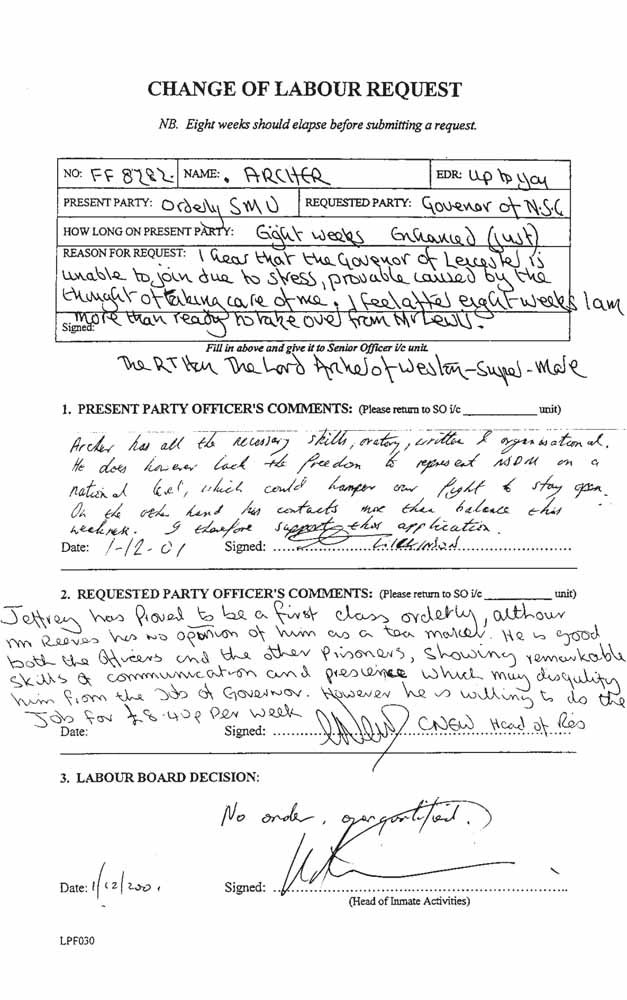 CHANGE OF LABOUR REQUEST
NB. Eight weeks should elapse before submitting a request.
NO: FF 8282. NAME: . ARCHER EDR: up to you
PRESENT PARTY: Orderly SMU REQUESTED PARTY: Govenor of N.S.C
HOW LONG ON PRESENT PARTY: Eight weeks Enhanced (just)
REASON FOR REQUEST: I hear that the Govenor of Leicester is
unable to join due to stress, provable caused by the
thought of taking care of me. I feel after eight weeks I am
more than ready to take over from Mr Lewis.
Signed:
Fill in above and give it to Senior Officer i/c unit.
The RT Hon The Lord Archer of Weston-Super-Mare
1. PRESENT PARTY OFFICER'S COMMENTS: (Please return to SO i/c ____________ unit)
Archer has all the necessary skills, oratory, written & organisational.
He does however lack the freedom to represent NSDM on a
national level, which could hamper our fight to stay open.
On the other hand his contacts more than balance this
weakness. I therefore support this application.
Date: 1-12-01 Signed:
2. REQUESTED PARTY OFFICER'S COMMENTS: (Please return to SO i/c ___________ unit)
Jeffrey has Proved to be a first class orderly, althour
mr Reeves has no opinion of him as a tea maker. He is good
both the Officers and the other Prisoners, Showing remarkable
Skills of communication and presience which may disqulify
him from the Job of Governor. However he is willing to do the
Job for £8.40p Per week
Date: Signed: CNEW Head of Res
3. LABOUR BOARD DECISION:
No order,
Date: 1/12/2001 Signed:
(Head of Inmate Activities)
LPF030